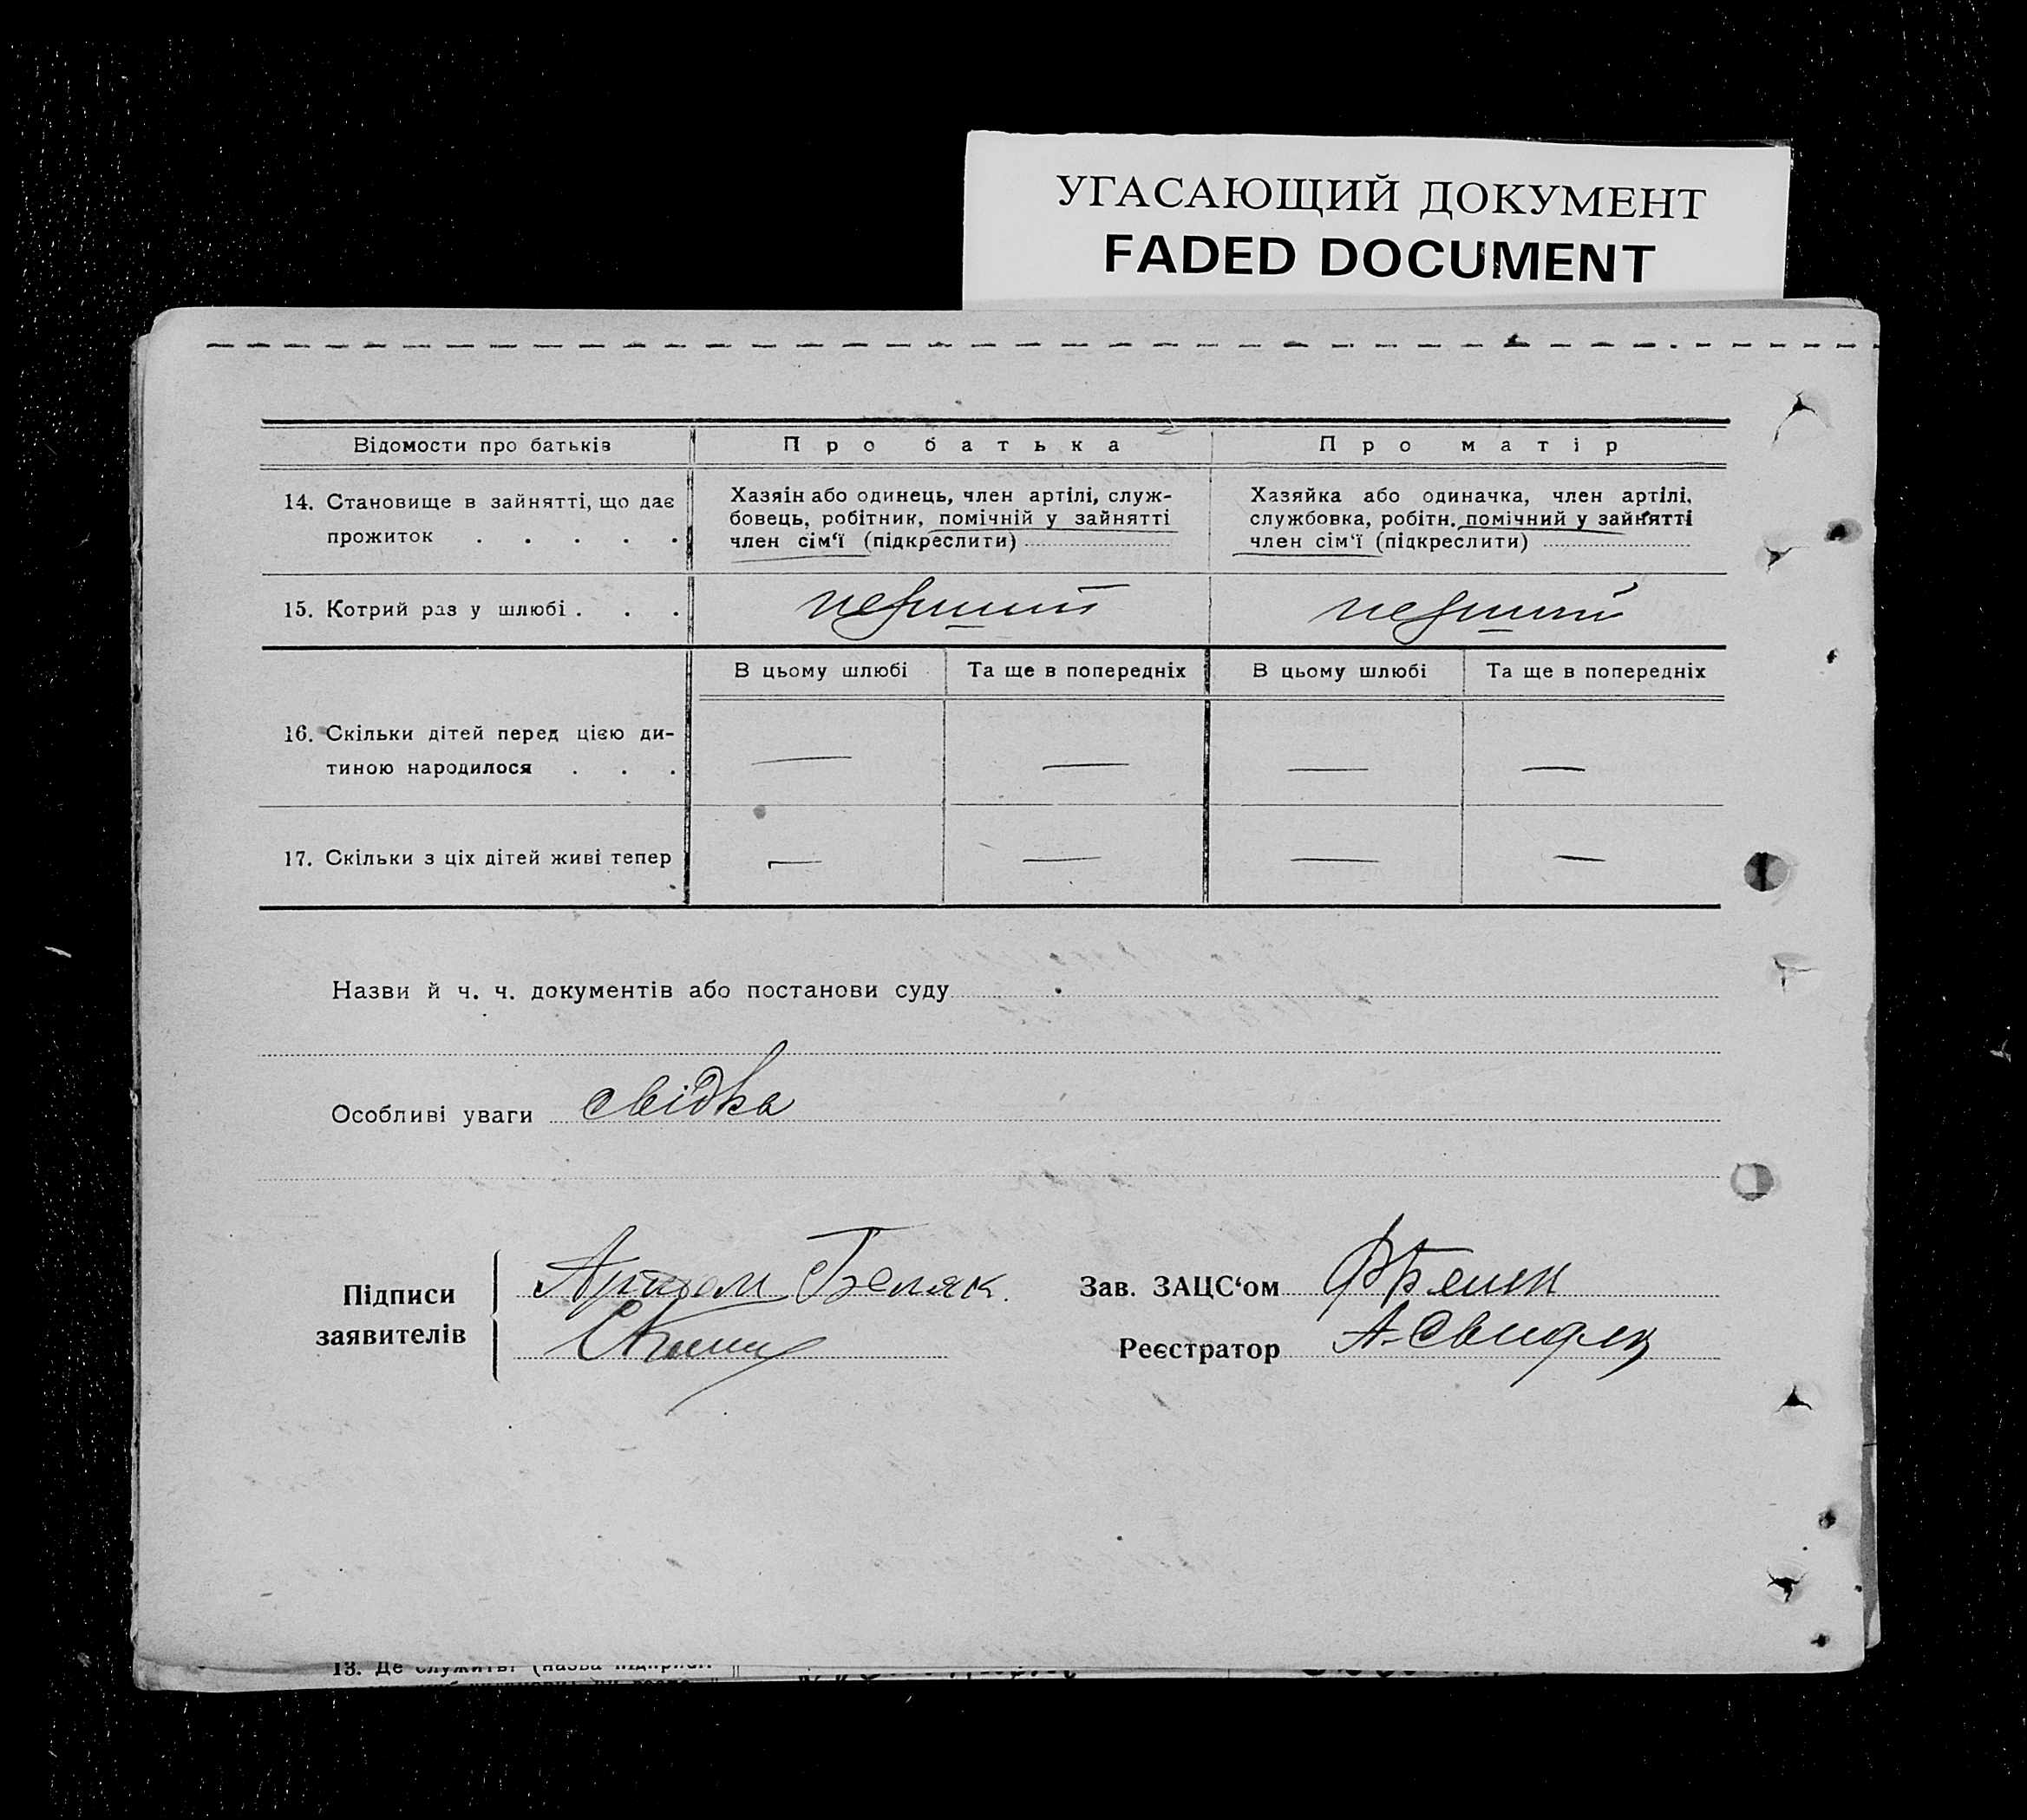 УГАСАЮЩИЙ ДОКУМЕНТ
FADED DOCUMENT
Відомости про батьків
Про батька
Про матір
14. Становище в зайнятті, що дає
прожиток . . . . .
Хазяїн або одинець, член артілі, служ-
бовець, робітник, помічній у зайнятті
член сім‘ї (підкреслити)
Хазяйка або одиначка, член артілі,
службовка, робітн. помічний у зайнятті
член сім‘ї (підкреслити)
15. Котрий раз у шлюбі . . .
перший
перший
В цьому шлюбі
Та ще в попередніх
В цьому шлюбі
Та ще в попередніх
16. Скільки дітей перед цією ди-
тиною народилося . . .
— — — —
17. Скільки з ціх дітей живі тепер
— — — —
Назви й ч. ч. документів або постанови суду
Особливі уваги свідка
Підписи
заявителів
Артом Беляк.
Зав. ЗАЦС‘ом
Реєстратор
13. Де служить? (назва підприєм.